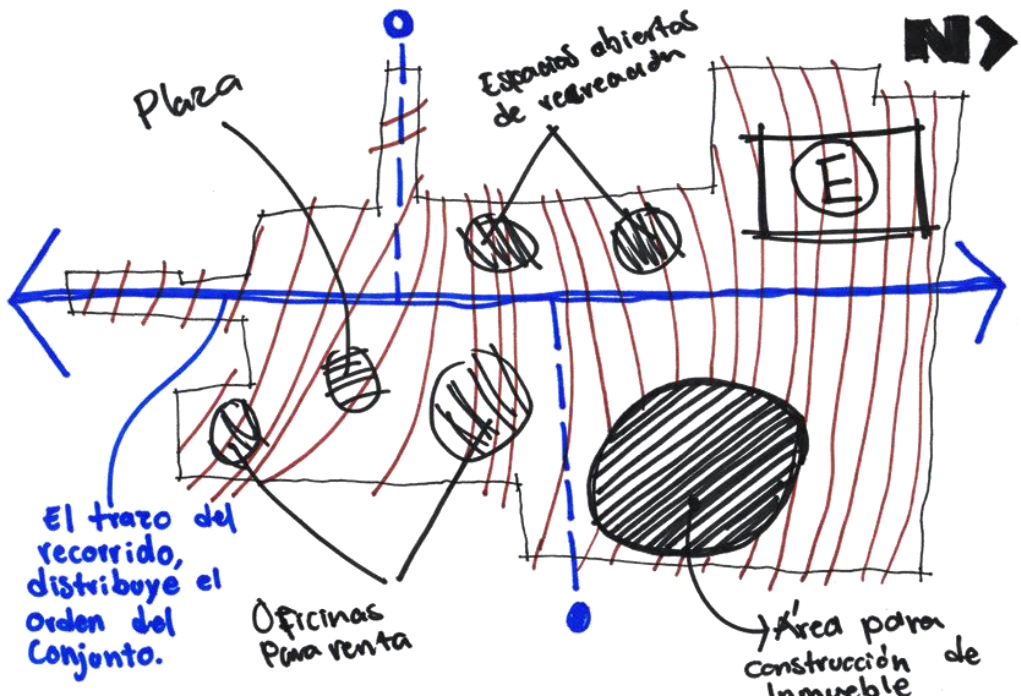 N
Plaza
Espacios abiertos
de recreación
E
El trazo del
recorrido,
distribuye el
orden del
conjunto.
Oficinas
para renta
Área para
construcción de
Inmueble